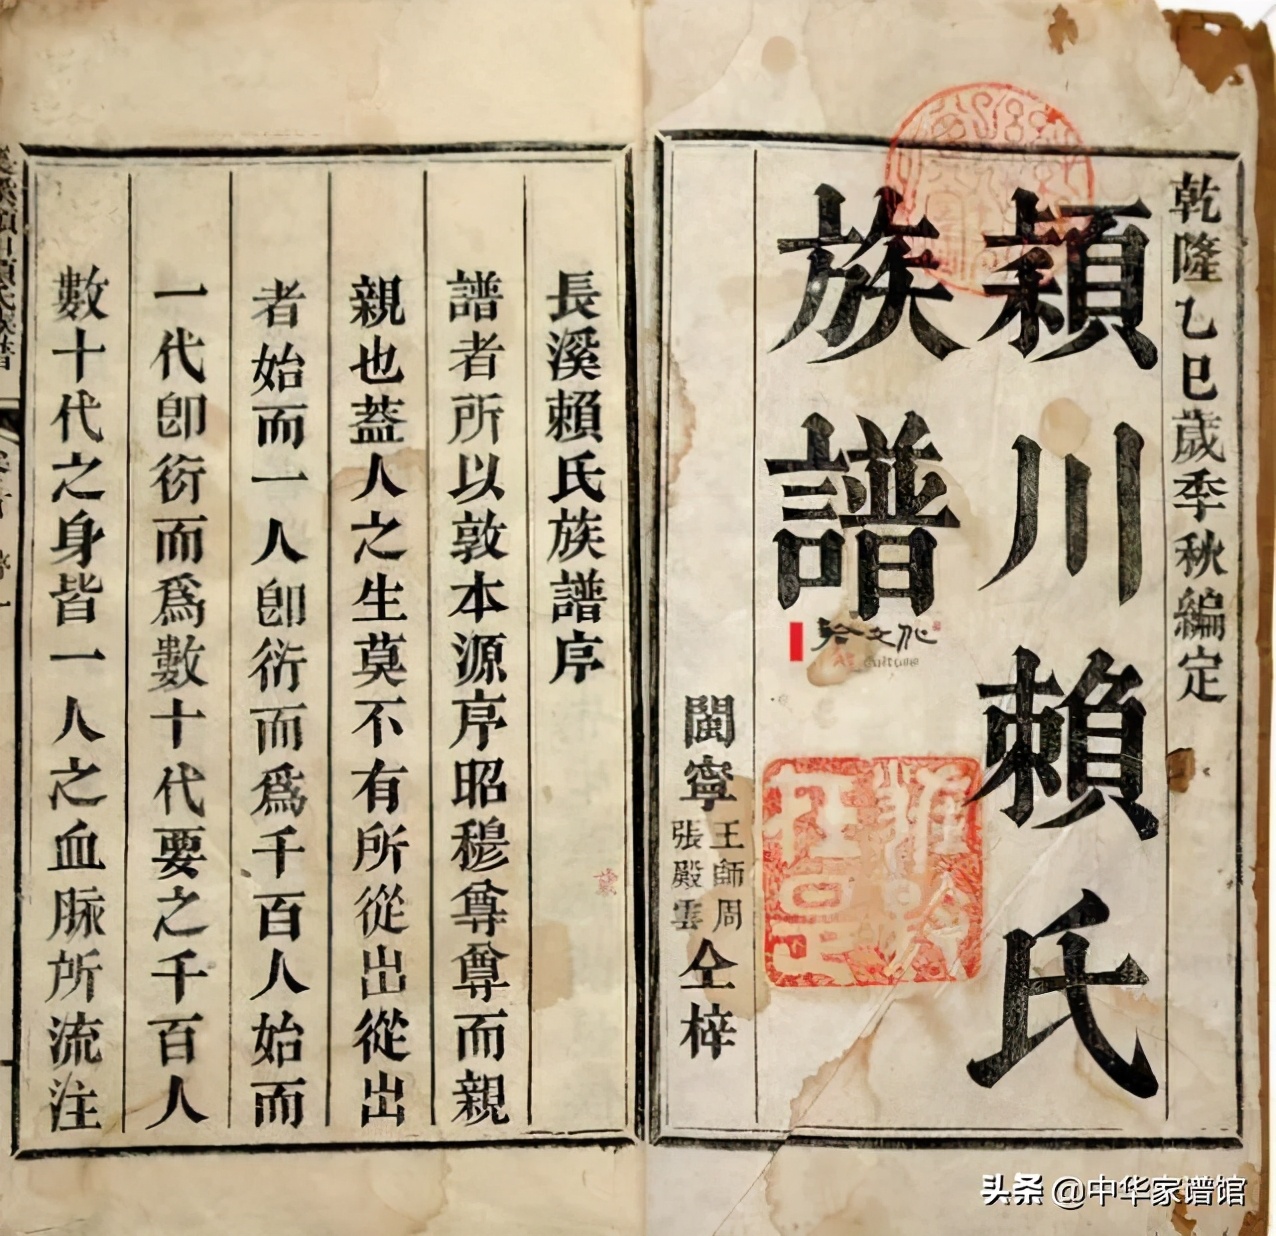 乾隆乙巳歲季秋編定
穎川賴氏
族譜
閩寧
王師周
張殿雲
仝梓
長溪賴氏族譜序
譜者所以敦本源序昭穆尊尊而親
親也蓋人之生莫不有所從出從出
者始而一人卽衍而爲千百人始而
一代卽衍而爲數十代要之千百人
數十代之身皆一人之血脉所流注
头条 @中华家谱馆